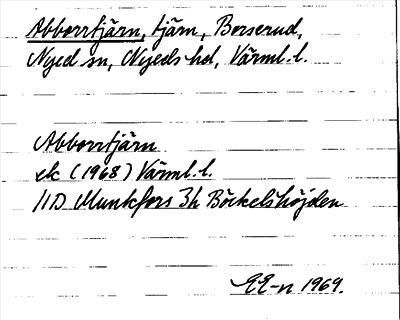 Abborrtjärn, tjärn, Borserud,
Nyed sn, Nyeds hd, Värml. l.
Abborrtjärn
ek (1968) Värml. l.
11D Munkfors 3h Böckelshöjden
EE-n 1969.